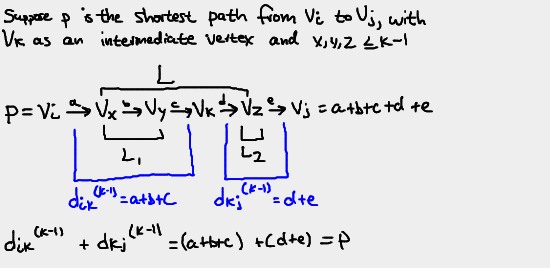 Suppose p is the shortest path from Vi to Vj, with
Vk as an intermediate vertex and x,y,z ≤ k-1
L
P = Vi →a Vx →b Vy →c Vk →d Vz →e Vj = a+b+c+d+e
L₁ L₂
dik^(k-1) = a+b+c dkj^(k-1) = d+e
dik^(k-1) + dkj^(k-1) = (a+b+c) + (d+e) = P